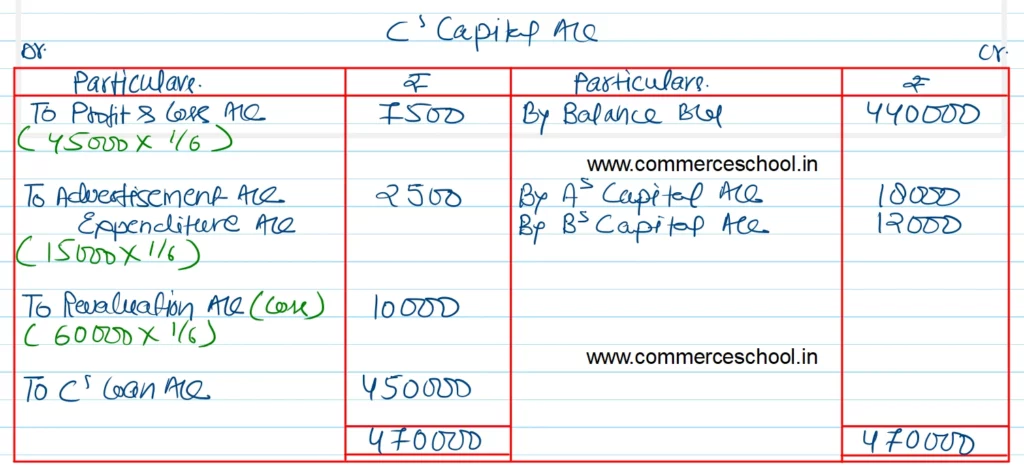 C's Capital A/c
Dr. Cr.
Particulars. ₹ Particulars. ₹
To Profit & Loss A/c 7500 By Balance B/d 440000
(45000 X 1/6)
www.commerceschool.in
To Advertisement A/c 2500 By A's Capital A/c 18000
Expenditure A/c By B's Capital A/c 12000
(15000 X 1/6)
To Revaluation A/c (Loss) 10000
(60000 X 1/6)
www.commerceschool.in
To C's Loan A/c 450000
470000 470000